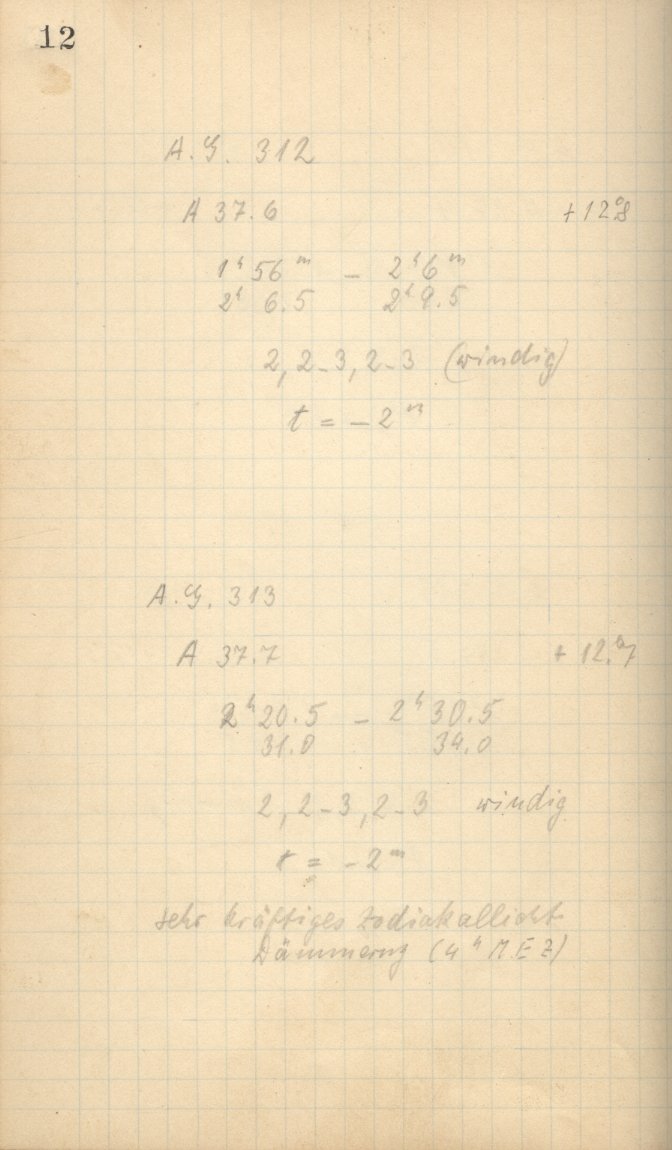 12
A.G. 312
A 37.6 +12.°8
1ʰ 56ᵐ – 2ʰ 6ᵐ
2ʰ 6.5 2ʰ 9.5
2, 2-3, 2-3 (windig)
t = -2ᵐ
A.G. 313
A 37.7 +12.°7
2ʰ 20.5 – 2ʰ 30.5
31.0 34.0
2, 2-3, 2-3 windig
t = -2ᵐ
sehr kräftiges Zodiakallicht
Dämmerung (4ʰ M.E.Z)